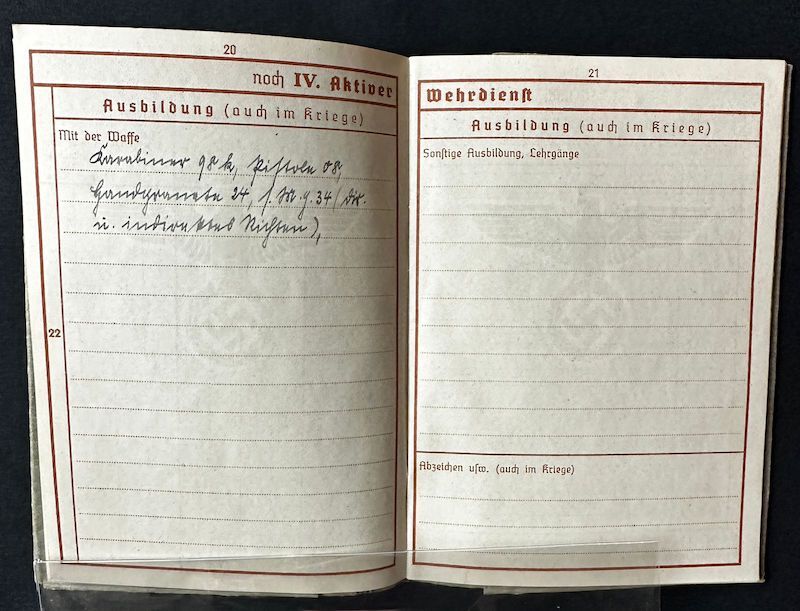 20
noch IV. Aktiver
Ausbildung (auch im Kriege)
Mit der Waffe
Karabiner 98 k, Pistole 08,
Handgranate 24, s. M. g. 34 (dir.
u. indirektes Richten),
22
21
Wehrdienst
Ausbildung (auch im Kriege)
Sonstige Ausbildung, Lehrgänge
Abzeichen usw. (auch im Kriege)